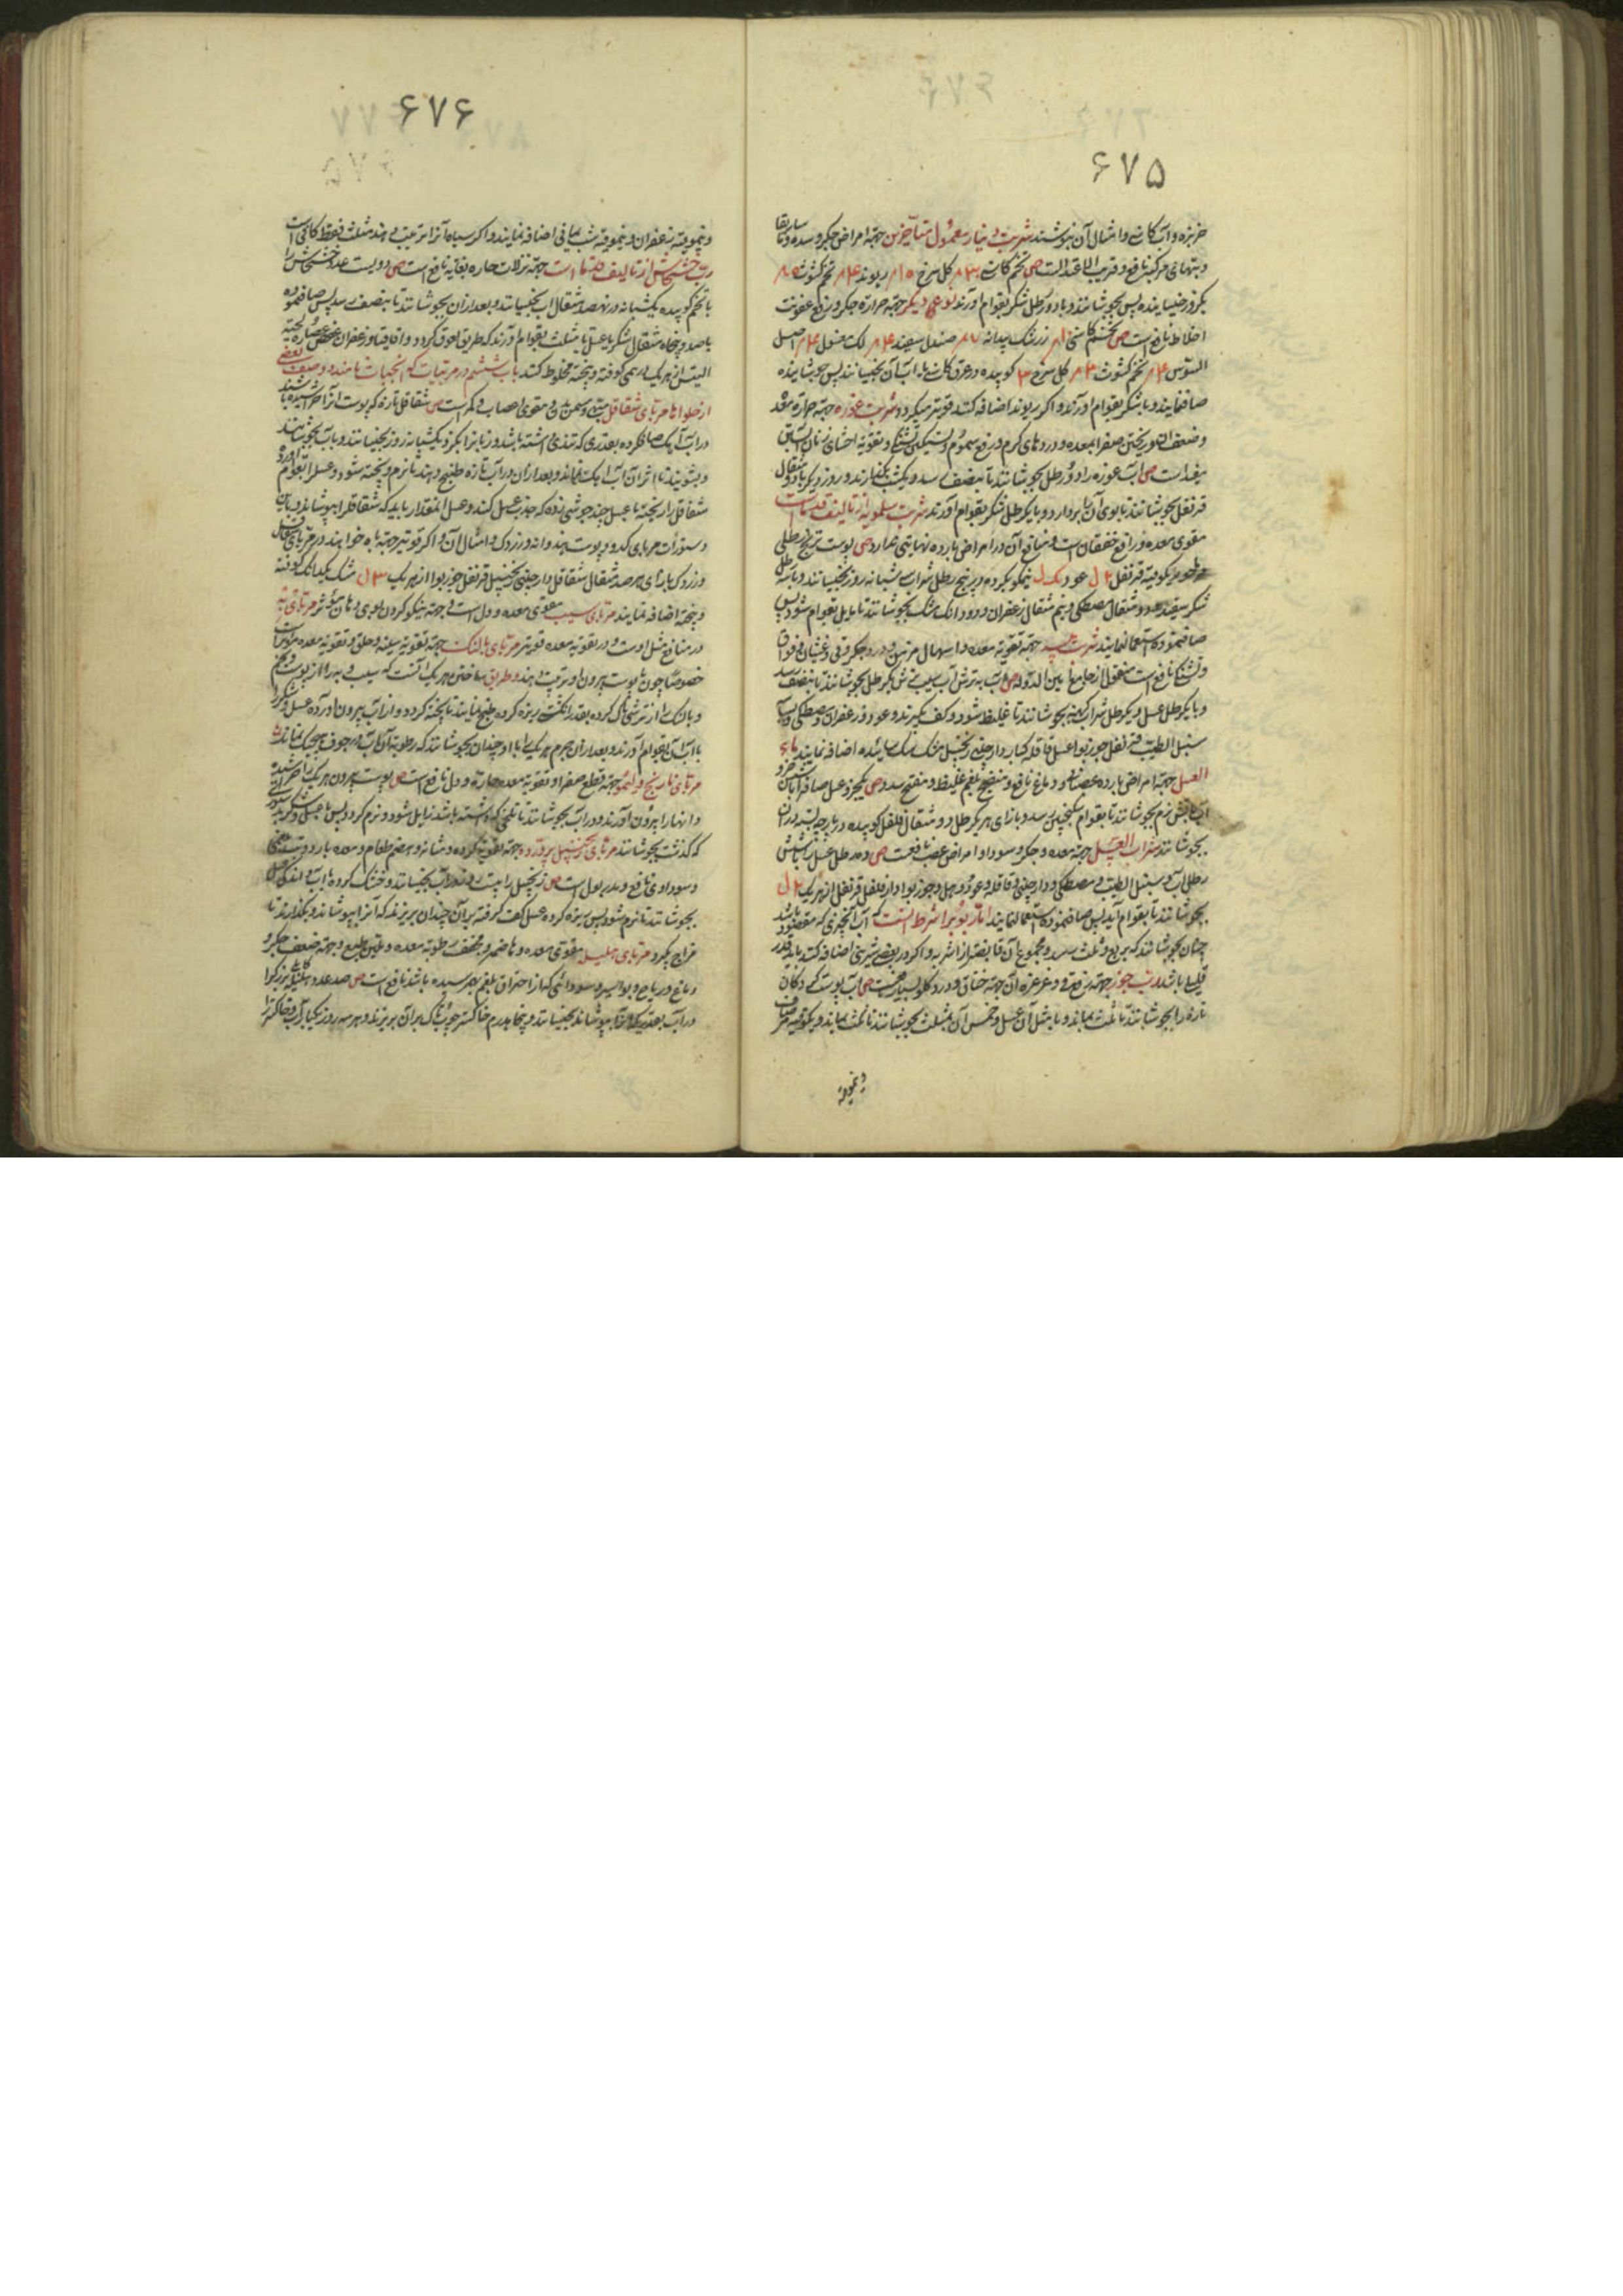 ۶۷۵
خربزه و آب کاسنی و امثال آن بنوشند شربت دینار معمول متأخرین جهة امراض جگر و سده و
و تبهای مرکبه نافع و قریب الاعتدالست ص تخم کاسنی گل سرخ ریوند تخم کثوث
یکروز خیسانیده پس بجوشانند و با دو رطل شکر بقوام آورند نوعی دیگر جهة حرارة جگر و رفع عفونت
اخلاط نافع است ص تخم کاسنی زرشک بیدانه صندل سفید لک مغسول اصل
السوس تخم کثوث گل سرخ کوبیده در عرق کاسنی یا آب آن بخیسانند پس جوشانیده
صاف نمایند و با شکر بقوام آورند و اگر ریوند اضافه کنند قویتر میگردد شربت غوره جهة حرارة معده
و ضعف آن و ریختن صفرا بمعده و دردهای گرم و رفع سموم و تسکین تشنگی و تقویة احشای زنان آبستن
مفید است ص آب غوره را دو رطل بجوشانند تا بنصف رسد و یکشب بگذارند و روز دیگر با دو مثقال
قرنفل بجوشانند تا بوی آن بردارد و با یکرطل شکر بقوام آورند شربت سلمویه از تالیف قدماست
مقوی معده و رافع خفقان است و منافع آن در امراض بارده نهایتی ندارد ص پوست ترنج رطلی
قرنفل ۲ ل عود یک ل نیمکوب کرده در پنج رطل شراب شبانه روز بخیسانند و با سه رطل
شکر سفید و دو مثقال مصطکی و نیم مثقال زعفران و دو دانگ مشک بجوشانند تا مایل بقوام شود پس
صاف نموده استعمال نمایند شربت به جهة تقویة معده و اسهال مزمن و درد جگر و قی و غثیان و فواق
و تشنگی نافع است منقول از جامع امین الدوله ص آب به ترش آب سیب ترش یکرطل بجوشانند تا بنصف رسد
و با یکرطل عسل و یکرطل شراب کهنه بجوشانند تا غلیظ شود و کف بگیرند و عود و زعفران و مصطکی
سنبل الطیب قرنفل جوزبوا عسل قاقله کبار دارچینی زنجبیل مشک سائیده اضافه نمایند ماء
العسل جهة امراض بارده عصبانی و دماغ نافع و منضج بلغم غلیظ و مفتح سدد ص یکجزو عسل صاف را با
آب بآتش نرم بجوشانند تا بقوام سکنجبین رسد و بازای هر یکرطل دو مثقال فلفل کوبیده در پارچه بسته در آن
بجوشانند شراب العسل جهة معده و جگر و سودا و امراض عصب نافعست ص ده رطل عسل را با شش
رطل آب و سنبل الطیب و مصطکی و دارچینی و قاقله و عود و هیل و جوزبوا و دارفلفل قرنفل از هر یک ۲ ل
بجوشانند تا بقوام آید پس صاف نموده استعمال نمایند امّا ربوبرا شرط آنست که آب آنچیزی که مقصود باشد
چنان بجوشانند که بربع و ثلث رسد و مجموع آن قابضتر از اشربه و اگر در بعضی شیرینی اضافه کنند باید قدر
قلیلی باشد رب جوز جهة رفع قی و غرغره آن جهة خناق و درد گلو بسیار مجربست ص آب پوست گردکان
تازه را بجوشانند تا ثلث بماند و با مثل آن عسل و خمس آن مثلث بجوشانند تا ثلث بماند و یکوقیه مرصاف
و نیموقیه
۶۷۶
و نیموقیه زعفران و نیموقیه شب یمانی اضافه نمایند و اگر سیاه آنرا ترتیب دهند مثلث فقط کافی است
رب خشخاش از تالیف قدما است جهة نزلات حاره بغایة نافع است ص دویست عدد خشخاش را
با تخم کوبیده یکشبانه در نهصد مثقال آب بخیسانند و بعد از آن بجوشانند تا بنصف رسد پس صاف نموده
با صد و پنجاه مثقال شکر یا عسل یا مثلث بقوام آورند که طریق لعوق گردد و اقاقیا و زعفران عصاره لحیة
التیس از هر یک درهمی کوفته و بیخته مخلوط کنند باب ششم در مربیات که انبجات نامند و صنف بعضی
از حلواها مربای شقاقل مبهی و مسمن بدن و مقوی اعصاب و کمر است ص شقاقل تازه که پوست آنرا خراشیده باشند
در آب آهک صاف کرده بقدری که تندی داشته باشد و زبانرا بگزد یکشبانه روز بخیسانند و با آب بجوشانند
و بشویند تا اثر آن آب آهک نماند و بعد از آن در آب تازه طبخ دهند تا نرم و پخته شود و عسل را بقوام آورده
شقاقل را ریخته با عسل چند جوشی زده که جذب عسل کند و عسل آنمقدار باید که شقاقل را بپوشاند و باین
دستورات مربای کدو و پوست هندوانه و زردک و امثال آن و اگر قویتر جهة باه خواهند در مربای شقاقل
و زردک بازای هر صد مثقال شقاقل دارچینی زنجبیل قرنفل جوزبوا از هر یک ۳ ل مشک یکدانک کوفته
و بیخته اضافه نمایند مربای سیب مقوی معده و دل است و جهة نیکو کردن بوی دهان مؤثر مربای به
در منافع مثل اوست و در تقویة معده قویتر مربای بالنک جهة تقویة سینه و حلق و تقویة معده مؤثر است
خصوصا چون با پوست بیرون او ترتیب دهند و طریق ساختن هر یک آنست که سیب و به را از پوست و تخم
و بالنک را از ترشی پاک کرده بقدر انگشت ریزه کرده طبخ نمایند تا پخته گردد و از آب بیرون آورده عسل و شکر را
با آب آن بقوام آورند و بعد از آن جرم هر یک را با او چندان بجوشانند که رطوبة آن آب در جوف هیچیک نماند
مربای نارنج و لیمو جهة قطع صفرا و تقویة معده حاره و دل نافع است ص پوست بیرون هر یک را خراشیده
و آنها را بیرون آورند و در آب بجوشانند تا تلخی که داشته باشد زایل شود و نرم گردد پس با عسل و شکر بدستور
که گذشت بجوشانند مربای زنجبیل پرورده جهة تقویة گرده و مثانه و هضم طعام و معده بارد و تب بلغمی
و سوداوی نافع و مدر بول است ص زنجبیل را بیست روز در آب بخیسانند و خشک کرده با آب و اندک عسل
بجوشانند تا نرم شود پس ریزه کرده عسل کف گرفته بر آن چندان بریزند که آنرا بپوشاند و بگذارند تا
مزاج بگیرد مربای هلیله مقوی معده و هاضم و مجفف رطوبة معده و ملین طبع و جهة ضعف جگر و
دماغ و ریاح و بواسیر و سودائی که از احتراق بلغم بهم رسیده باشد نافع است ص صد عدد هلیله کابلی بزرگ را
در آب بقدری که آنرا بپوشاند بخیسانند و پنجاه درم خاکستر چوب تاک بر آن بریزند و هر سه روز یکبار آب و خاکستر را